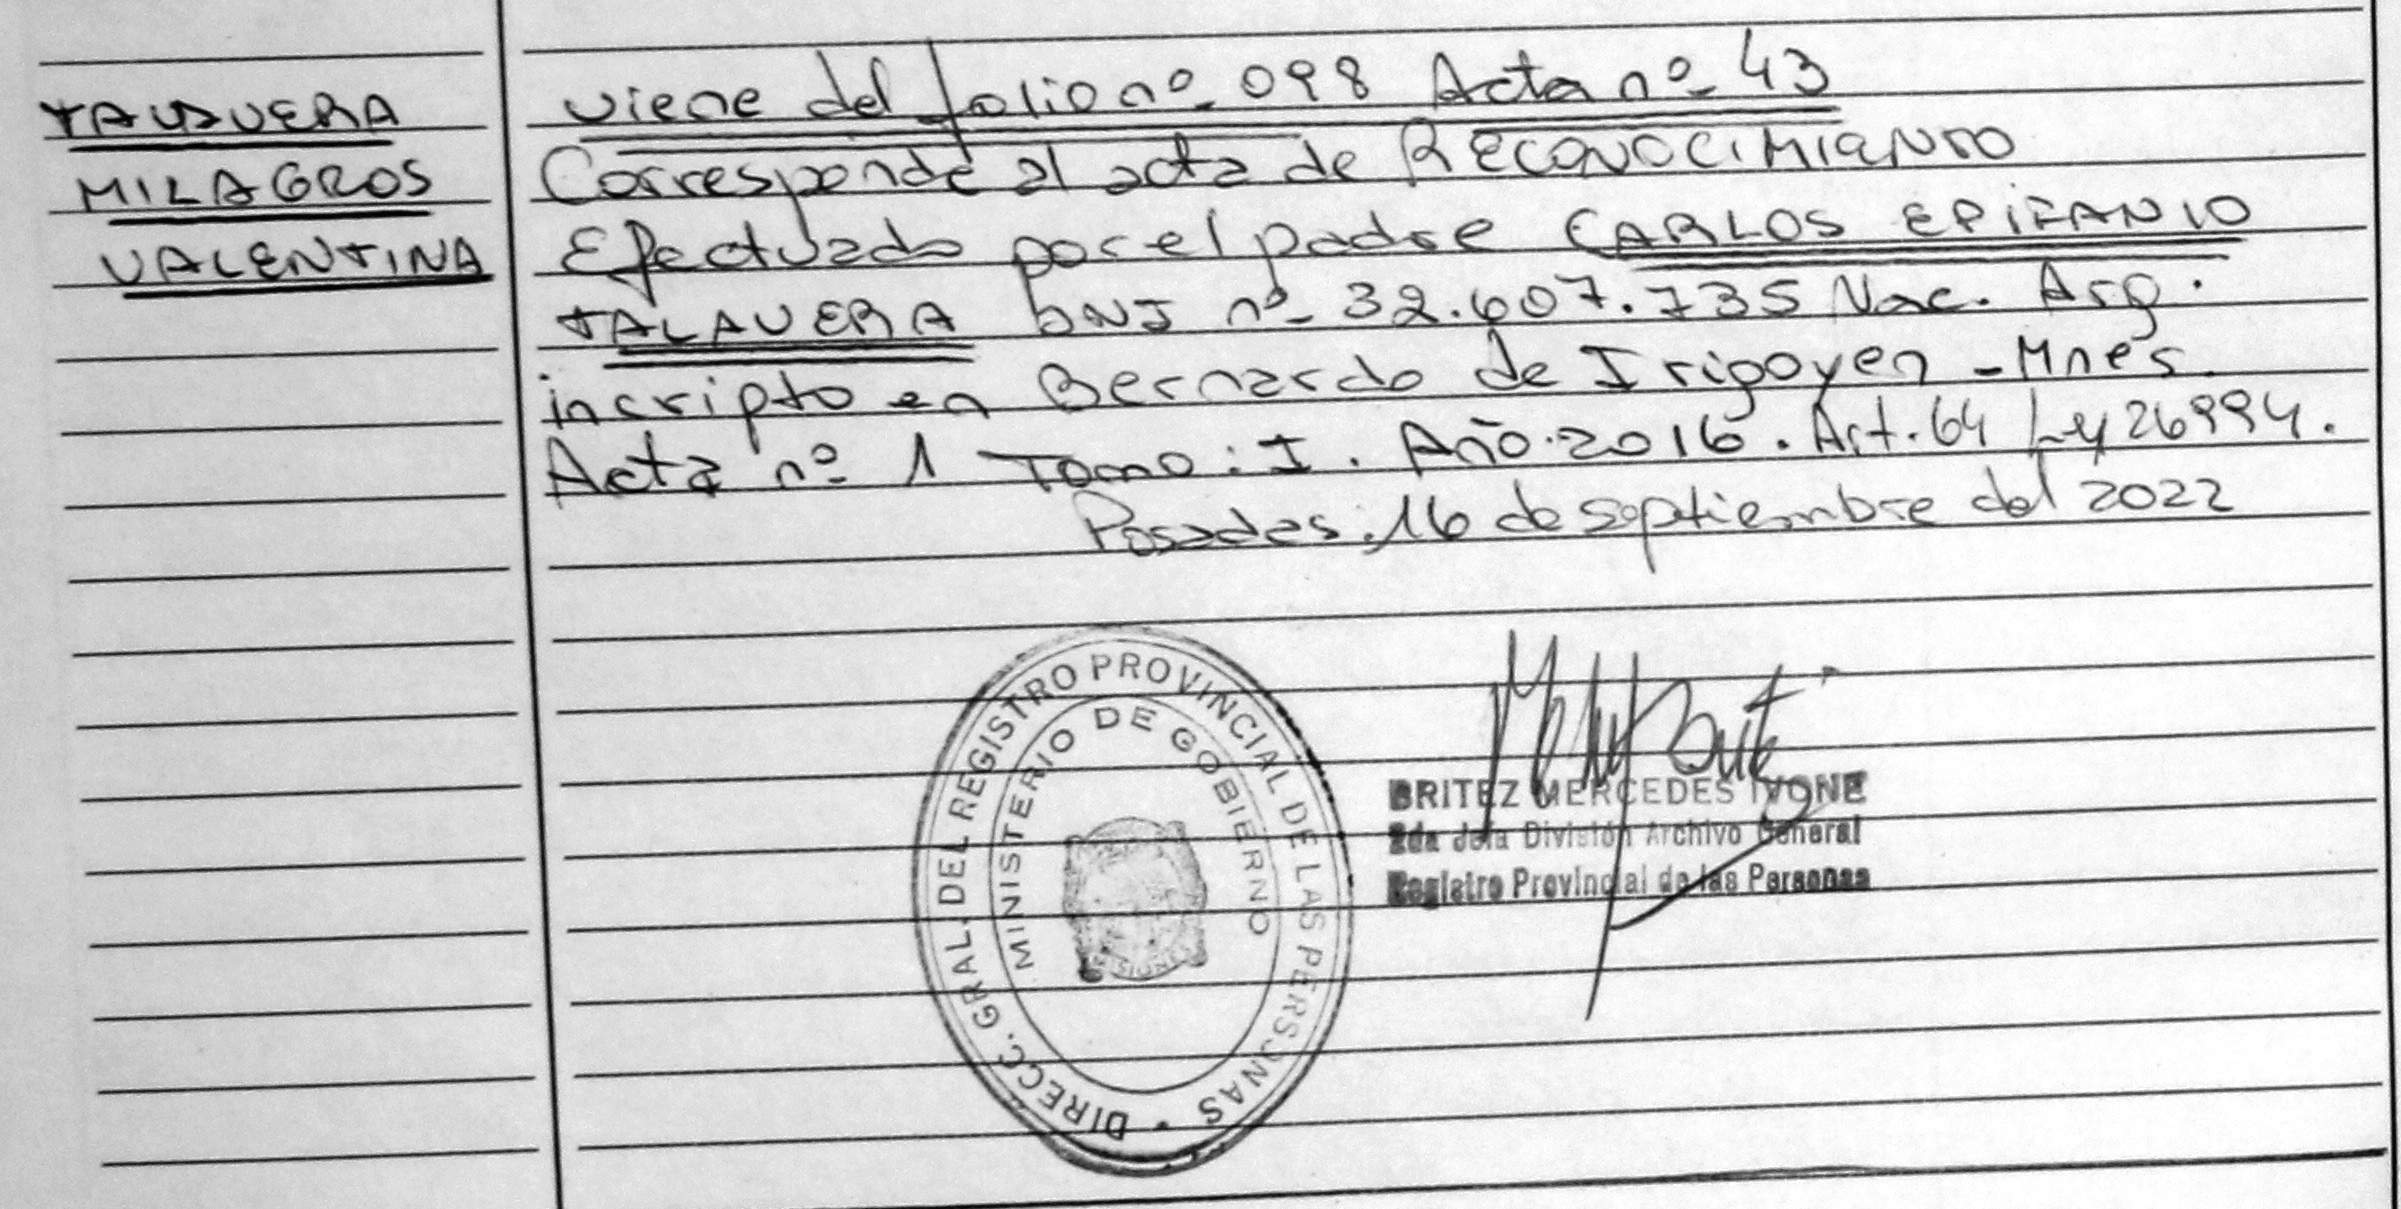 TALAVERA
MILAGROS
VALENTINA
viene del folio nº 098 Acta nº 43
Corresponde al acta de RECONOCIMIENTO
Efectuado por el padre CARLOS EPIFANIO
TALAVERA DNI nº 32.607.735 Nac. Arg.
inscripto en Bernardo de Irigoyen - Mnes.
Acta nº 1 Tomo: I. Año. 2016. Art. 64 Ley 26994.
Posadas, 16 de septiembre del 2022
DIRECC. GRAL. DEL REGISTRO PROVINCIAL DE LAS PERSONAS
MINISTERIO DE GOBIERNO
MISIONES
BRITEZ MERCEDES IVONE
2da Jefa División Archivo General
Registro Provincial de las Personas